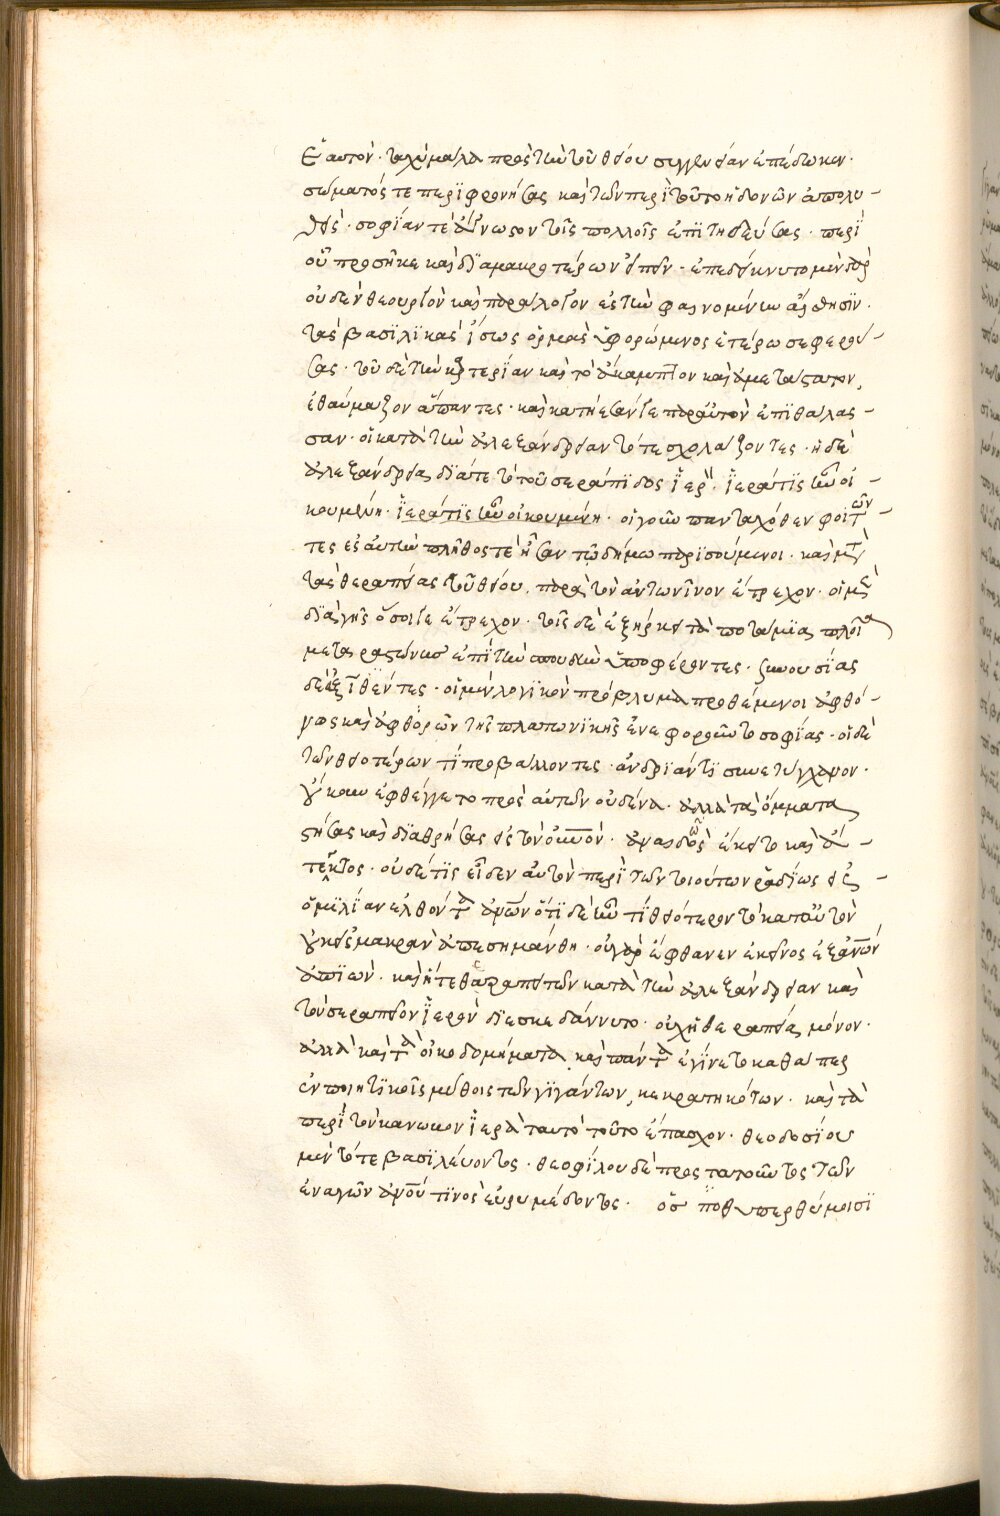 ἑαυτόν· ταχὺ μάλα πρὸς τὴν τοῦ θείου συγγένειαν ἐπέδωκεν·
σώματός τε περιφρονήσας καὶ τῶν περὶ τοῦτο ἡδονῶν ἀπολυ-
θείς· σοφίαν τε ἄγνωστον τοῖς πολλοῖς ἐπιτηδεύσας· περὶ
οὗ προσῆκε καὶ διὰ μακροτέρων εἰπεῖν· ἐπεδείκνυτο μὲν γὰρ
οὐδὲν θεουργὸν καὶ παράλογον ἐς τὴν φαινομένην αἴσθησιν·
τὰς βασιλικὰς ἴσως ὁρμὰς ὑφορώμενος ἑτέρωσε φερού-
σας· τοῦ δὲ τὴν καρτερίαν καὶ τὸ ἄκαμπτον καὶ ἀμετάστατον,
ἐθαύμαζον ἅπαντες· καὶ κατῄεσάν γε παρ' αὐτὸν ἐπὶ θάλασ-
σαν· οἱ κατὰ τὴν ἀλεξάνδρειαν τότε σχολάζοντες· ἡ δὲ
ἀλεξάνδρεια, διά τε τὸ τοῦ σεράπιδος ἱερ· ἱερά τις ἦν οἰ-
κουμένη· ἱερά τις ἦν οἰκουμένη· οἱ γοῦν πανταχόθεν φοιτῶν-
τες ἐς αὐτὴν πλῆθός τε ἦσαν τῷ δήμῳ παρισούμενοι· καὶ μετὰ
τὰς θεραπείας τοῦ θείου, παρὰ τὸν ἀντωνῖνον ἔτρεχον· οἱ μὲν
διὰ γῆς ὅσοι γε ἔτρεχον· τοῖς δὲ ἐξήρκει τὰ ποτάμια πλοῖα
μετὰ ῥαστώνης ἐπὶ τὴν σπουδὴν ὑποφέροντες· συνουσίας
δὲ ἀξιωθέντες· οἱ μὲν λογικὸν πρόβλημα προθέμενοι ἀφθό-
νως καὶ ἀφθόρων τῆς πλατωνικῆς ἐνεφοροῦντο σοφίας· οἱ δὲ
τῶν θειοτέρων τι προβάλλοντες· ἀνδριάντι συνετύγχανον·
οὔκουν ἐφθέγγετο πρὸς αὐτῶν οὐδένα· ἀλλὰ τὰ ὄμματα
στήσας καὶ διαθρήσας εἰς τὸν οὐνὸν· ἄναυδος ἔκειτο καὶ ἄ-
τεγκτος· οὐδέ τις εἶδεν αὐτὸν περὶ τῶν τοιούτων ῥᾳδίως εἰς
ὁμιλίαν ἐλθόντα ἀνῶν ὅτι δὲ ἦν τι θειότερον τὸ κατ' αὐτὸν
οὐκ εἰς μακρὰν ἀπεσημάνθη· οὐ γὰρ ἔφθανεν ἐκεῖνος ἐξ ἀνῶν
ἀπιών· καὶ ἥ τε θεραπεία τῶν κατὰ τὴν ἀλεξάνδρειαν καὶ
τὸν σεραπεῖον ἱερὸν διεσκεδάννυτο· οὐχ ἡ θεραπεία μόνον·
ἀλλὰ καὶ τὰ οἰκοδομήματα καὶ πάντα ἐγίνετο καθάπερ
ἐν ποιητικοῖς μύθοις τῶν γιγάντων, κεκρατηκότων· καὶ τὰ
περὶ τὸν κάνωβον ἱερὰ ταυτὸ τοῦτο ἔπασχον· θεοδοσίου
μὲν τότε βασιλεύοντος· θεοφίλου δὲ προστατοῦντος τῶν
ἐναγῶν ἀνοῦ τινὸς εὐρυμέδοντος· ὅς ποθ' ὑπερθύμοισι